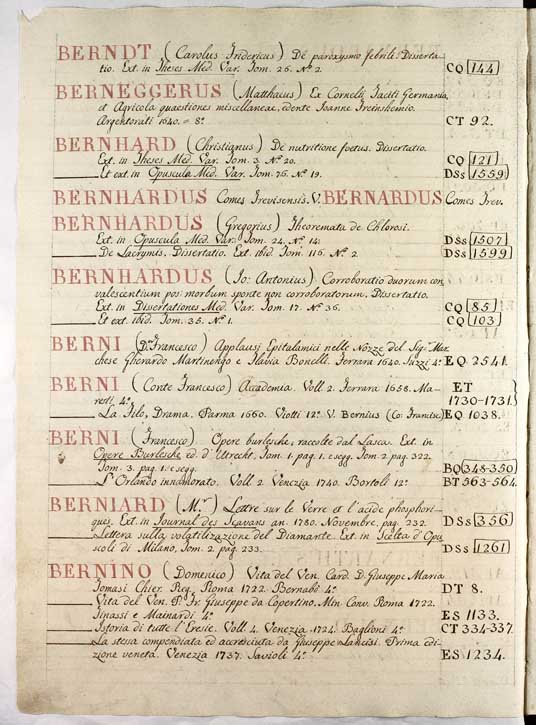 BERNDT (Carolus Fridericus) De paroxysmo febrili. Disserta-
tio. Ext. in Theses Med. Var. Tom. 26. N.º 2. CQ 144
BERNEGGERUS (Matthaeus) Ex Cornelii Taciti Germania,
et Agricola quaestiones miscellaneae, edente Ioanne Freinshemio.
Argentorati 1640. = 8.º CT 92.
BERNHARD (Christianus) De nutritione foetus. Dissertatio.
Ext. in Theses Med. Var. Tom. 3. N.º 20. CQ 121
Et ext. in Opuscula Med. Var. Tom. 76. N.º 19. DSs 1559
BERNHARDUS Comes Trevisensis. V. BERNARDUS Comes Trev.
BERNHARDUS (Gregorius) Theoremata de Chlorosi.
Ext. in Opuscula Med. Var. Tom. 24. N.º 14. DSs 1507
De Lacrymis. Dissertatio. Ext. ibid. Tom. 116. N.º 2 DSs 1599
BERNHARDUS (Jo: Antonius) Corroboratio duorum con
valescentium pos morbum sponte non corroboratorum. Dissertatio.
Ext. in Dissertationes Med. Var. Tom. 17. N.º 36. CQ 85
Et ext. ibid. Tom. 35. N.º 1. CQ 103
BERNI (D.r Francesco) Applausi Epitalamici nelle Nozze del Sig.r Mar
chese Gherardo Martinengo e Flavia Bonelli. Ferrara 1640. Suzzi 4.º EQ 2541.
BERNI (Conte Francesco) Accademia. Voll. 2. Ferrara 1658. Ma- ET
resti. 4.º 1730-1731.
La Filo, Drama. Parma 1660. Viotti 12.º V. Bernius (Co: Francisc) EQ 1038.
BERNI (Francesco). Opere burlesche, raccolte dal Lasca. Ext. in
Opere Burlesche ed. d'Utrecht. Tom. 1. pag. 1. e segg. Tom. 2. pag. 322.
Tom. 3. pag. 1. e segg. BQ 348-350
L'Orlando innamorato. Voll. 2. Venezia 1740. Bortoli 12.º BT 563-564.
BERNIARD (M.r) Lettre sur le Verre et l'acide phosphori-
ques. Ext. in Journal des Sçavans an. 1780. Novembre. pag. 232. DSs 356
Lettera sulla volatilizazione del Diamante. Ext. in Scelta d'Opu
scoli di Milano, Tom. 2. pag. 233. DSs 1261
BERNINO (Domenico) Vita del Ven. Card. D. Giuseppe Maria
Tomasi Chier. Reg. Roma 1722. Bernabò 4.º DT 8.
Vita del Ven. P. Fr. Giuseppe da Copertino. Min. Conv. Roma 1722.
Tinassi e Mainardi 4.º ES 1133.
Istoria di tutte l'Eresie. Voll. 4. Venezia. 1724. Baglioni 4.º CT 334-337.
La stessa compendiata ed accresciuta da Giuseppe Lancisi. Prima edi-
zione veneta. Venezia 1737. Savioli 4.º ES 1234.